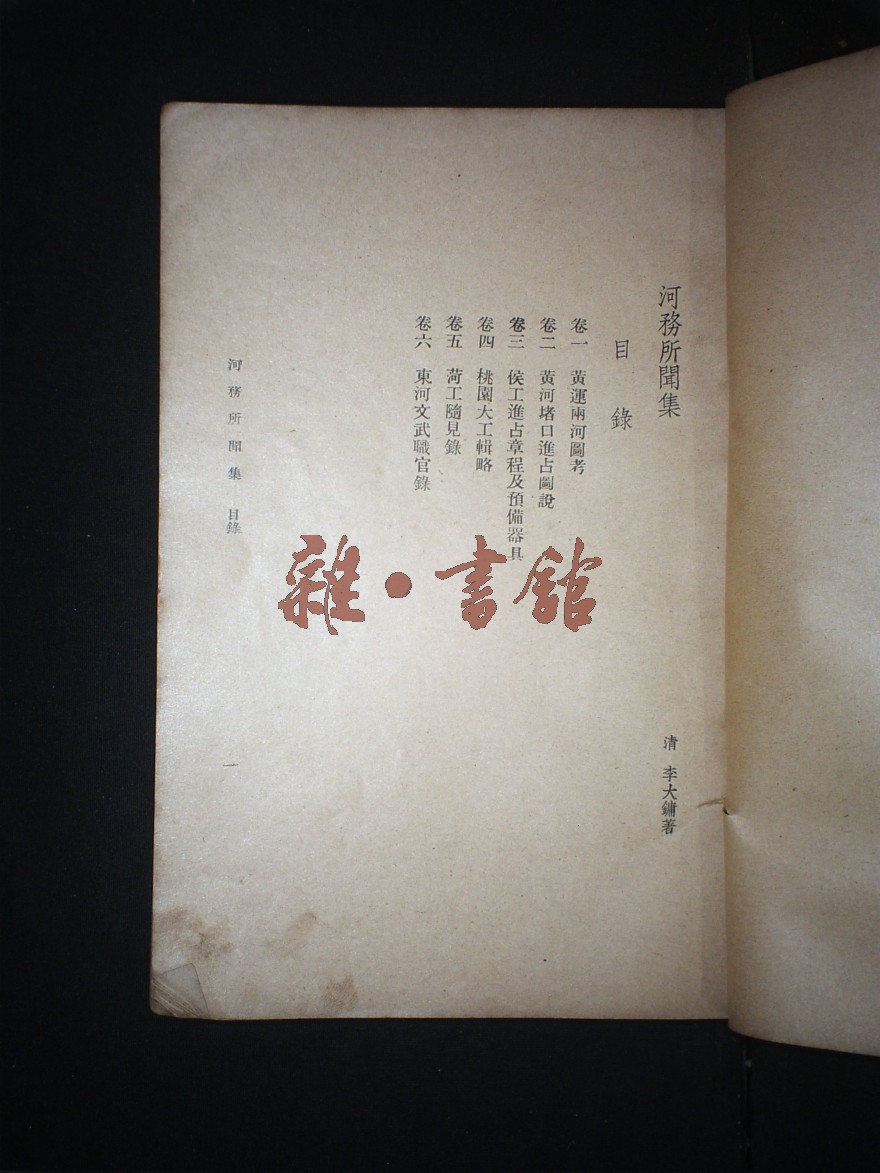 河務所聞集
清 李大鏞著
目錄
卷一 黃運兩河圖考
卷二 黃河堵口進占圖說
卷三 侯工進占章程及預備器具
卷四 桃園大工輯略
卷五 菏工隨見錄
卷六 東河文武職官錄
河務所聞集 目錄
一
雜·書館